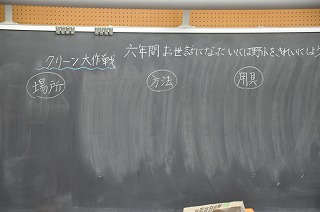 六年間お世話になった いには野小をきれいにしよう
クリーン大作戦
場所 方法 用具